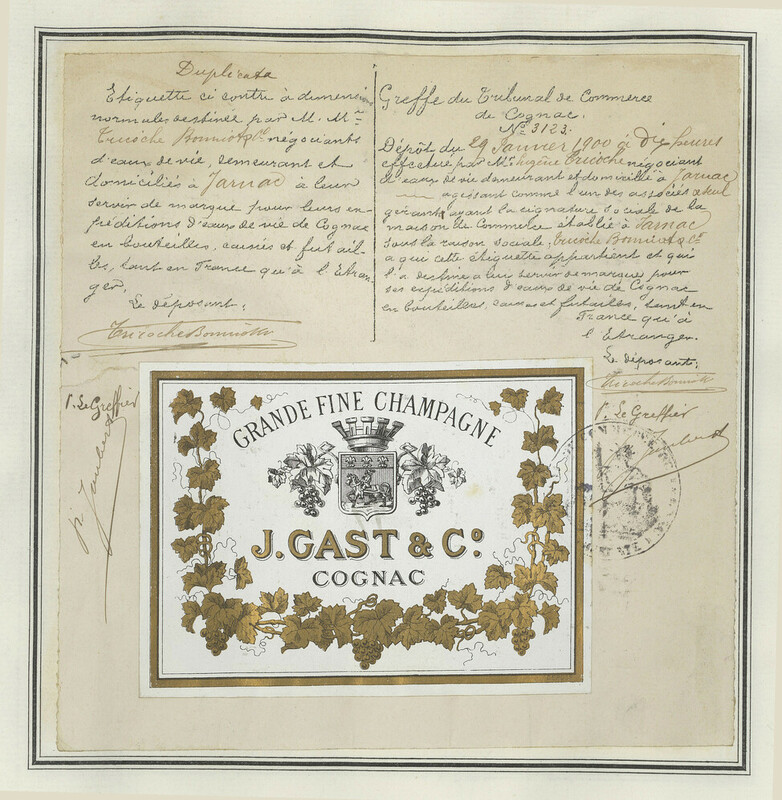 Duplicata
Etiquette ci contre à dimensions
normales destinée par M. M.rs
Tricoche Bonniot & Cie négociants
d'eaux de vie, demeurant et
domiciliés à Jarnac à leur
servir de marque pour leurs ex-
péditions d'eaux de vie de Cognac
en bouteilles, caisses et futail-
les, tant en France qu'à l'Etran-
ger.
Le déposant,
Tricoche Bonniot & Cie
Greffe du Tribunal de Commerce
de Cognac.
N° 3123.
Dépôt du 29 Janvier 1900 à Dix heures
effectué par Mr Eugène Tricoche négociant
d'eaux de vie demeurant et domicilié à Jarnac
agissant comme l'un des associés et seul
gérants ayant la signature sociale de la
maison de Commerce établie à Jarnac
sous la raison sociale, Tricoche Bonniot & Cie
a qui cette étiquette appartient et qui
l'a destine a lui servir de marques pour
ses expéditions d'eaux de vie de Cognac
en bouteilles, caisses et futailles, tant en
France qu'à
l'Etranger.
Le déposant:
Tricoche Bonniot & Cie
p. Le Greffier
p. Le Greffier
GRANDE FINE CHAMPAGNE
J. GAST & Co.
COGNAC